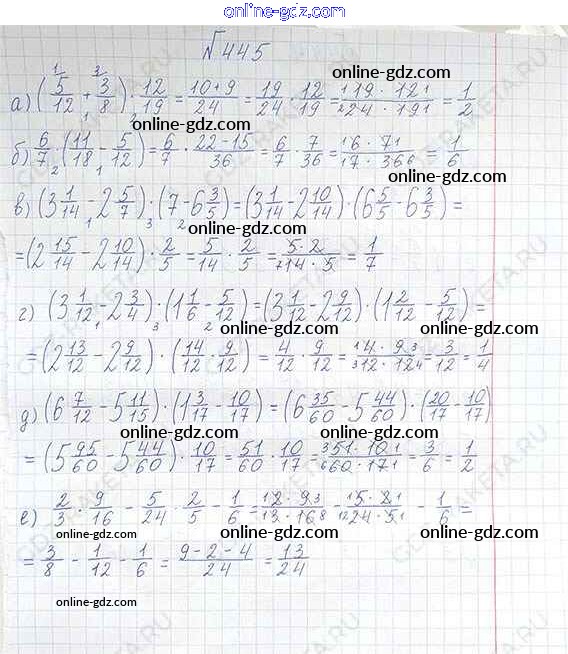 online-gdz.com
№445
online-gdz.com
а) (5/12 + 3/8) · 12/19 = (10+9)/24 = 19/24 · 12/19 = (19 · 12)/(24 · 19) = 1/2
online-gdz.com
б) 6/7 · (11/18 - 5/12) = 6/7 · (22-15)/36 = 6/7 · 7/36 = (6 · 7)/(7 · 36) = 1/6
online-gdz.com
online-gdz.com
в) (3 1/14 - 2 5/7) · (7 - 6 3/5) = (3 1/14 - 2 10/14) · (6 5/5 - 6 3/5) =
online-gdz.com
= (2 15/14 - 2 10/14) · 2/5 = 5/14 · 2/5 = (5 · 2)/(14 · 5) = 1/7
online-gdz.com
online-gdz.com
г) (3 1/12 - 2 3/4) · (1 1/6 - 5/12) = (3 1/12 - 2 9/12) · (1 2/12 - 5/12) =
online-gdz.com
online-gdz.com
= (2 13/12 - 2 9/12) · (14/12 · 9/12) = 4/12 · 9/12 = (4 · 9)/(12 · 12) = 3/12 = 1/4
online-gdz.com
online-gdz.com
д) (6 7/12 - 5 11/15) · (1 3/17 - 10/17) = (6 35/60 - 5 44/60) · (20/17 - 10/17)
online-gdz.com
online-gdz.com
= (5 95/60 - 5 44/60) · 10/17 = 51/60 · 10/17 = (51 · 10)/(60 · 17) = 3/6 = 1/2
online-gdz.com
online-gdz.com
е) 2/3 · 9/16 - 5/24 · 2/5 - 1/6 = (2 · 9)/(3 · 16) - (5 · 2)/(24 · 5) - 1/6 =
online-gdz.com
online-gdz.com
= 3/8 - 1/12 - 1/6 = (9-2-4)/24 = 13/24
online-gdz.com
online-gdz.com
online-gdz.com